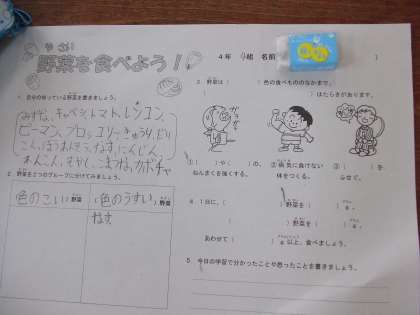 やさい
野菜を食べよう！
4年 組 名前
1．自分の知っている野菜を書きましょう。
みずな、キャベツ、トマト、レンコン、
ピーマン、ブロッコリー、きゅうり、だい
こん、ほうれんそう、なす、にんじん、
れんこん、もやし、こまつな、カボチャ
2．野菜を2つのグループに分けてみましょう。
色のこい 野菜
（色のうすい ）野菜
なす
3．野菜は（ ）色の食べもののなかまで、
（ ）はたらきがあります。
①（ ）や（ ）の、
ねんまくを強くする。
②病気に負けない
体をつくる。
③（ ）を
ふせぐ。
4．1日に、（ ）野菜を（ ）g、
（ ）野菜を（ ）g、
あわせて（ ）g以上、食べましょう。
5．今日の学習で分かったことや思ったことを書きましょう。